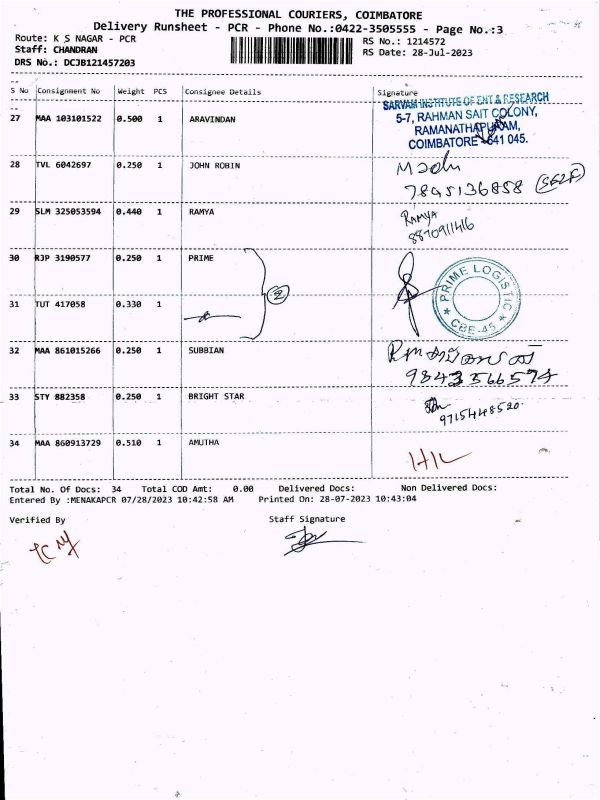 THE PROFESSIONAL COURIERS, COIMBATORE
Delivery Runsheet - PCR - Phone No.:0422-3505555 - Page No.:3
Route: K S NAGAR - PCR
RS No.: 1214572
Staff: CHANDRAN
RS Date: 28-Jul-2023
DRS No.: DCJB121457203
S No Consignment No Weight PCS Consignee Details Signature
SARVAM INSTITUTE OF ENT & RESEARCH
27 MAA 103101522 0.500 1 ARAVINDAN 5-7, RAHMAN SAIT COLONY,
RAMANATHAPURAM,
COIMBATORE - 641 045.
28 TVL 6042697 0.250 1 JOHN ROBIN
7845136858 (SELF)
29 SLM 325053594 0.440 1 RAMYA RAMYA
8870911416
30 RJP 3190577 0.250 1 PRIME
2
PRIME LOGISTIC
* CBE-45 *
31 TUT 417058 0.330 1
32 MAA 861015266 0.250 1 SUBBIAN
9843566574
33 STY 882358 0.250 1 BRIGHT STAR
9715448520
34 MAA 860913729 0.510 1 AMUTHA
Total No. Of Docs: 34 Total COD Amt: 0.00 Delivered Docs: Non Delivered Docs:
Entered By :MENAKAPCR 07/28/2023 10:42:58 AM Printed On: 28-07-2023 10:43:04
Verified By Staff Signature